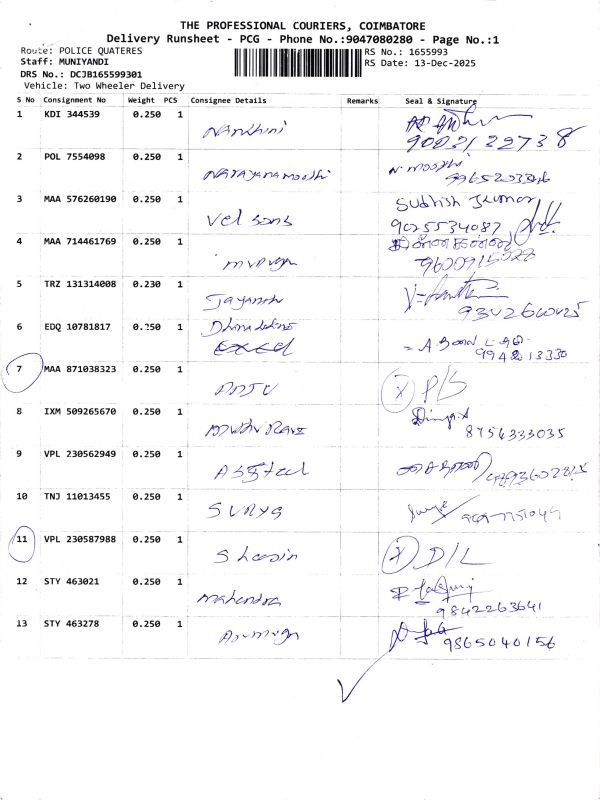 THE PROFESSIONAL COURIERS, COIMBATORE
Delivery Runsheet - PCG - Phone No.:9047080280 - Page No.:1
Route: POLICE QUATERES
RS No.: 1655993
Staff: MUNIYANDI
RS Date: 13-Dec-2025
DRS No.: DCJB165599301
Vehicle: Two Wheeler Delivery
S No Consignment No Weight PCS Consignee Details Remarks Seal & Signature
1 KDI 344539 0.250 1 Nandhini
9003132738
2 POL 7554098 0.250 1 Narayanamoodhi N. moodhi
3 MAA 576260190 0.250 1 Vel sons Sudhish Kumar
9025534087
4 MAA 714461769 0.250 1 murugan
9600915028
5 TRZ 131314008 0.230 1 Jayanth
9342640425
6 EDQ 10781817 0.250 1
Excel
9942213330
7 MAA 871038323 0.250 1 Anju X P/S
8 IXM 509265670 0.250 1
8754333035
9 VPL 230562949 0.250 1
10 TNJ 11013455 0.250 1 Surya
11 VPL 230587988 0.250 1 X D/L
12 STY 463021 0.250 1 Mahendra
9842263641
13 STY 463278 0.250 1 Arumugn
9865040156